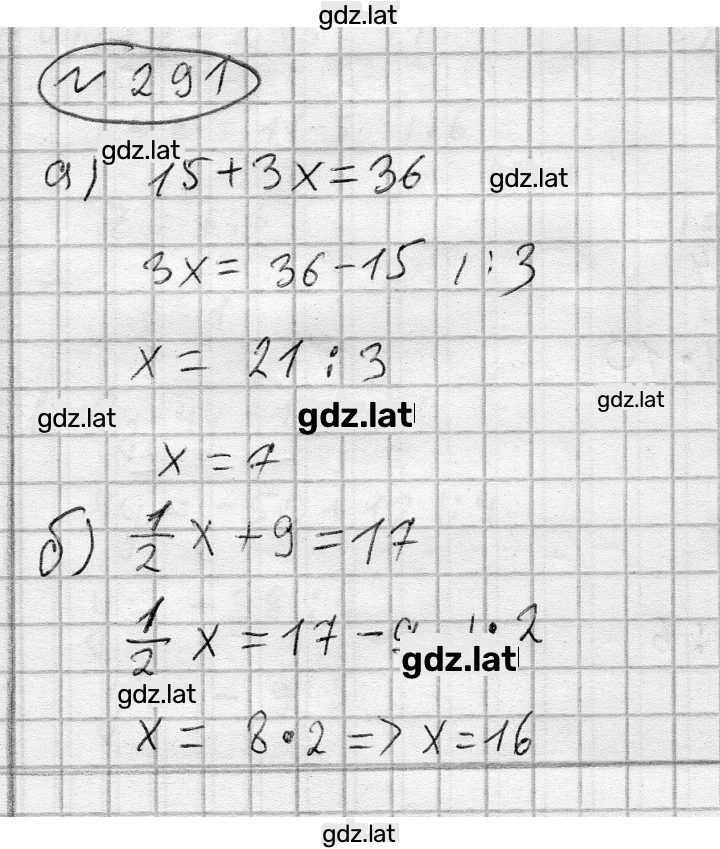 gdz.lat
№ 291
gdz.lat
а) 15 + 3x = 36
gdz.lat
3x = 36 - 15 / : 3
x = 21 : 3
gdz.lat
gdz.lat
gdz.lat
x = 7
б) 1/2 x + 9 = 17
1/2 x = 17 - 9 / · 2
gdz.lat
gdz.lat
x = 8 · 2 => x = 16
gdz.lat